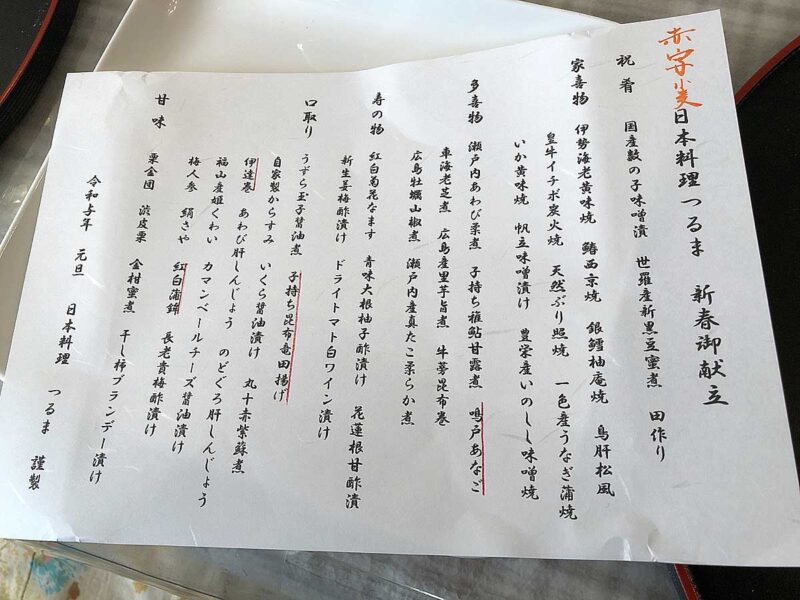 赤字小麦
日本料理つるま　新春御献立
祝肴　国産数の子味噌漬　世羅産新黒豆蜜煮　田作り
家喜物　伊勢海老黄味焼　鰆西京焼　銀鱈柚庵焼　鳥肝松風
皇牛イチボ炭火焼　天然ぶり照焼　一色産うなぎ蒲焼
いか黄味焼　帆立味噌漬け　豊栄産いのしし味噌焼
多喜物　瀬戸内あわび柔煮　子持ち稚鮎甘露煮　鳴戸あなご
車海老芝煮　広島産里芋旨煮　牛蒡昆布巻
広島牡蠣山椒煮　瀬戸内産真たこ柔らか煮
寿の物　紅白菊花なます　青味大根柚子酢漬け　花蓮根甘酢漬
新生姜梅酢漬け　ドライトマト白ワイン漬け
口取り　うずら玉子醤油煮　子持ち昆布竜田揚げ
自家製からすみ　いくら醤油漬け　丸十赤紫蘇煮
伊達巻　あわび肝しんじょう　のどぐろ肝しんじょう
福山産姫くわい　カマンベールチーズ醤油漬け
梅人参　絹さや　紅白蒲鉾　長老貴梅酢漬け
甘味　栗金団　渋皮栗　金柑蜜煮　干し柿ブランデー漬け
令和与年　元旦　日本料理　つるま　謹製